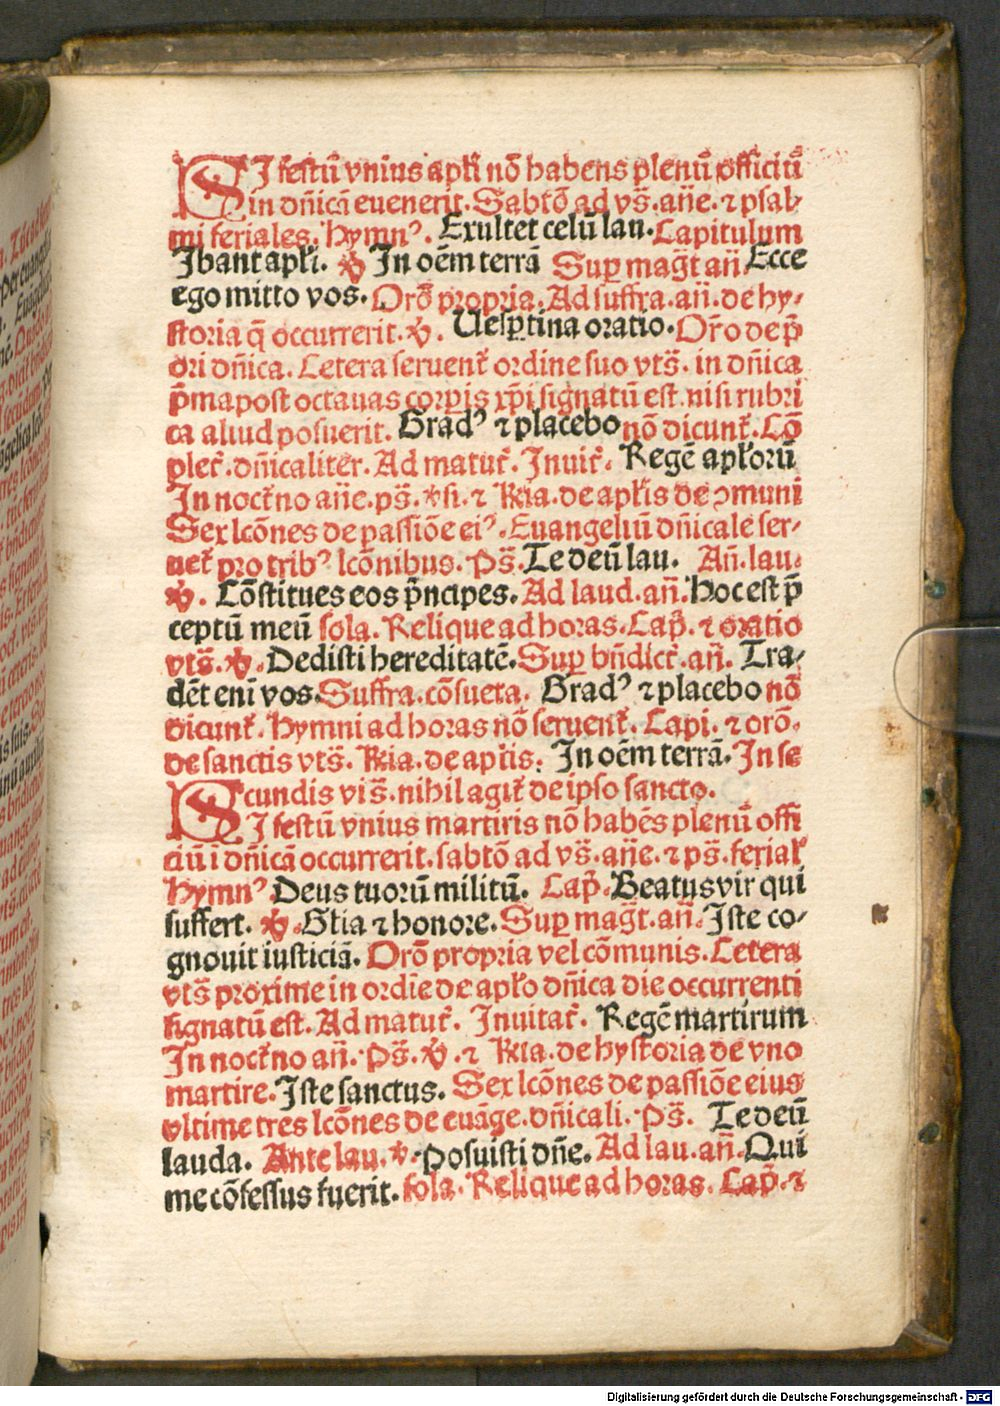 SI festū vnius apłi nō habens plenū officiū
in dn̄icā euenerit. Sabtō ad vs̄. an̄e. ⁊ psal-
mi feriales. Hymnꝰ. Exultet celū lau. Capitulum
Ibant apłi. ℣ In oēm terrā Suꝑ mag̃t an̄. Ecce
ego mitto vos. Orō propria. Ad suffra. an̄. de hy-
storia q̄ occurrerit. ℣. Uesꝑtina oratio. Orō de p̄
ori dn̄ica. Cetera seruent᷑ ordine suo vts̄. in dn̄ica
p̄ma post octauas corꝑis xp̄i signatū est. nisi rubri
ca aliud posuerit. Gradꝰ ⁊ placebo nō dicunt᷑. Cō
plet᷑. dn̄icaliter. Ad matut᷑. Inuit᷑. Regē apłorū
In noct᷑no an̄e. ps̄. ℣si. ⁊ R̄ia. de apłis de ꝯmuni
Sex lcōnes de passiōe eiꝰ. Euangeliū dn̄icale ser-
uet᷑ pro tribꝰ lcōnibus. Ps̄. Te deū lau. An̄. lau.
℣. Cōstitues eos p̄ncipes. Ad laud. an̄. Hoc est p̄
ceptū meū sola. Relique ad horas. Cap̄. ⁊ oratio
vts̄. ℣. Dedisti hereditatē. Suꝑ bn̄dict᷑. an̄. Tra-
dēt eni vos. Suffra. cōsueta. Gradꝰ ⁊ placebo nō
dicunt᷑. Hymni ad horas nō seruent᷑. Capi. ⁊ orō.
de sanctis vts̄. R̄ia. de apłis. In oēm terrā. In se
cundis vis̄. nihil agit᷑ de ipso sancto.
SI festū vnius martiris nō habēs plenū offi
ciū i dn̄icā occurrerit. sabtō ad vs̄. an̄e. ⁊ ps̄. ferial᷑
Hymnꝰ Deus tuorū militū. Cap̄. Beatus vir qui
suffert. ℣. Gl̄ia ⁊ honore. Suꝑ mag̃t. an̄. Iste co-
gnouit iusticiā. Orō propria vel cōmunis. Cetera
vts̄ proxime in ordīe de apło dn̄ica die occurrenti
signatū est. Ad matut᷑. Inuitat᷑. Regē martirum
In noct᷑no an̄. Ps̄. ℣. ⁊ R̄ia. de hystoria de vno
martire. Iste sanctus. Sex lcōnes de passiōe eius
vltime tres lcōnes de euāge. dn̄icali. Ps̄. Te deū
lauda. Ante lau. ℣. Posuisti dn̄e. Ad lau. an̄. Qui
me cōfessus fuerit. sola. Relique ad horas. Cap̄. ⁊
Digitalisierung gefördert durch die Deutsche Forschungsgemeinschaft - DFG